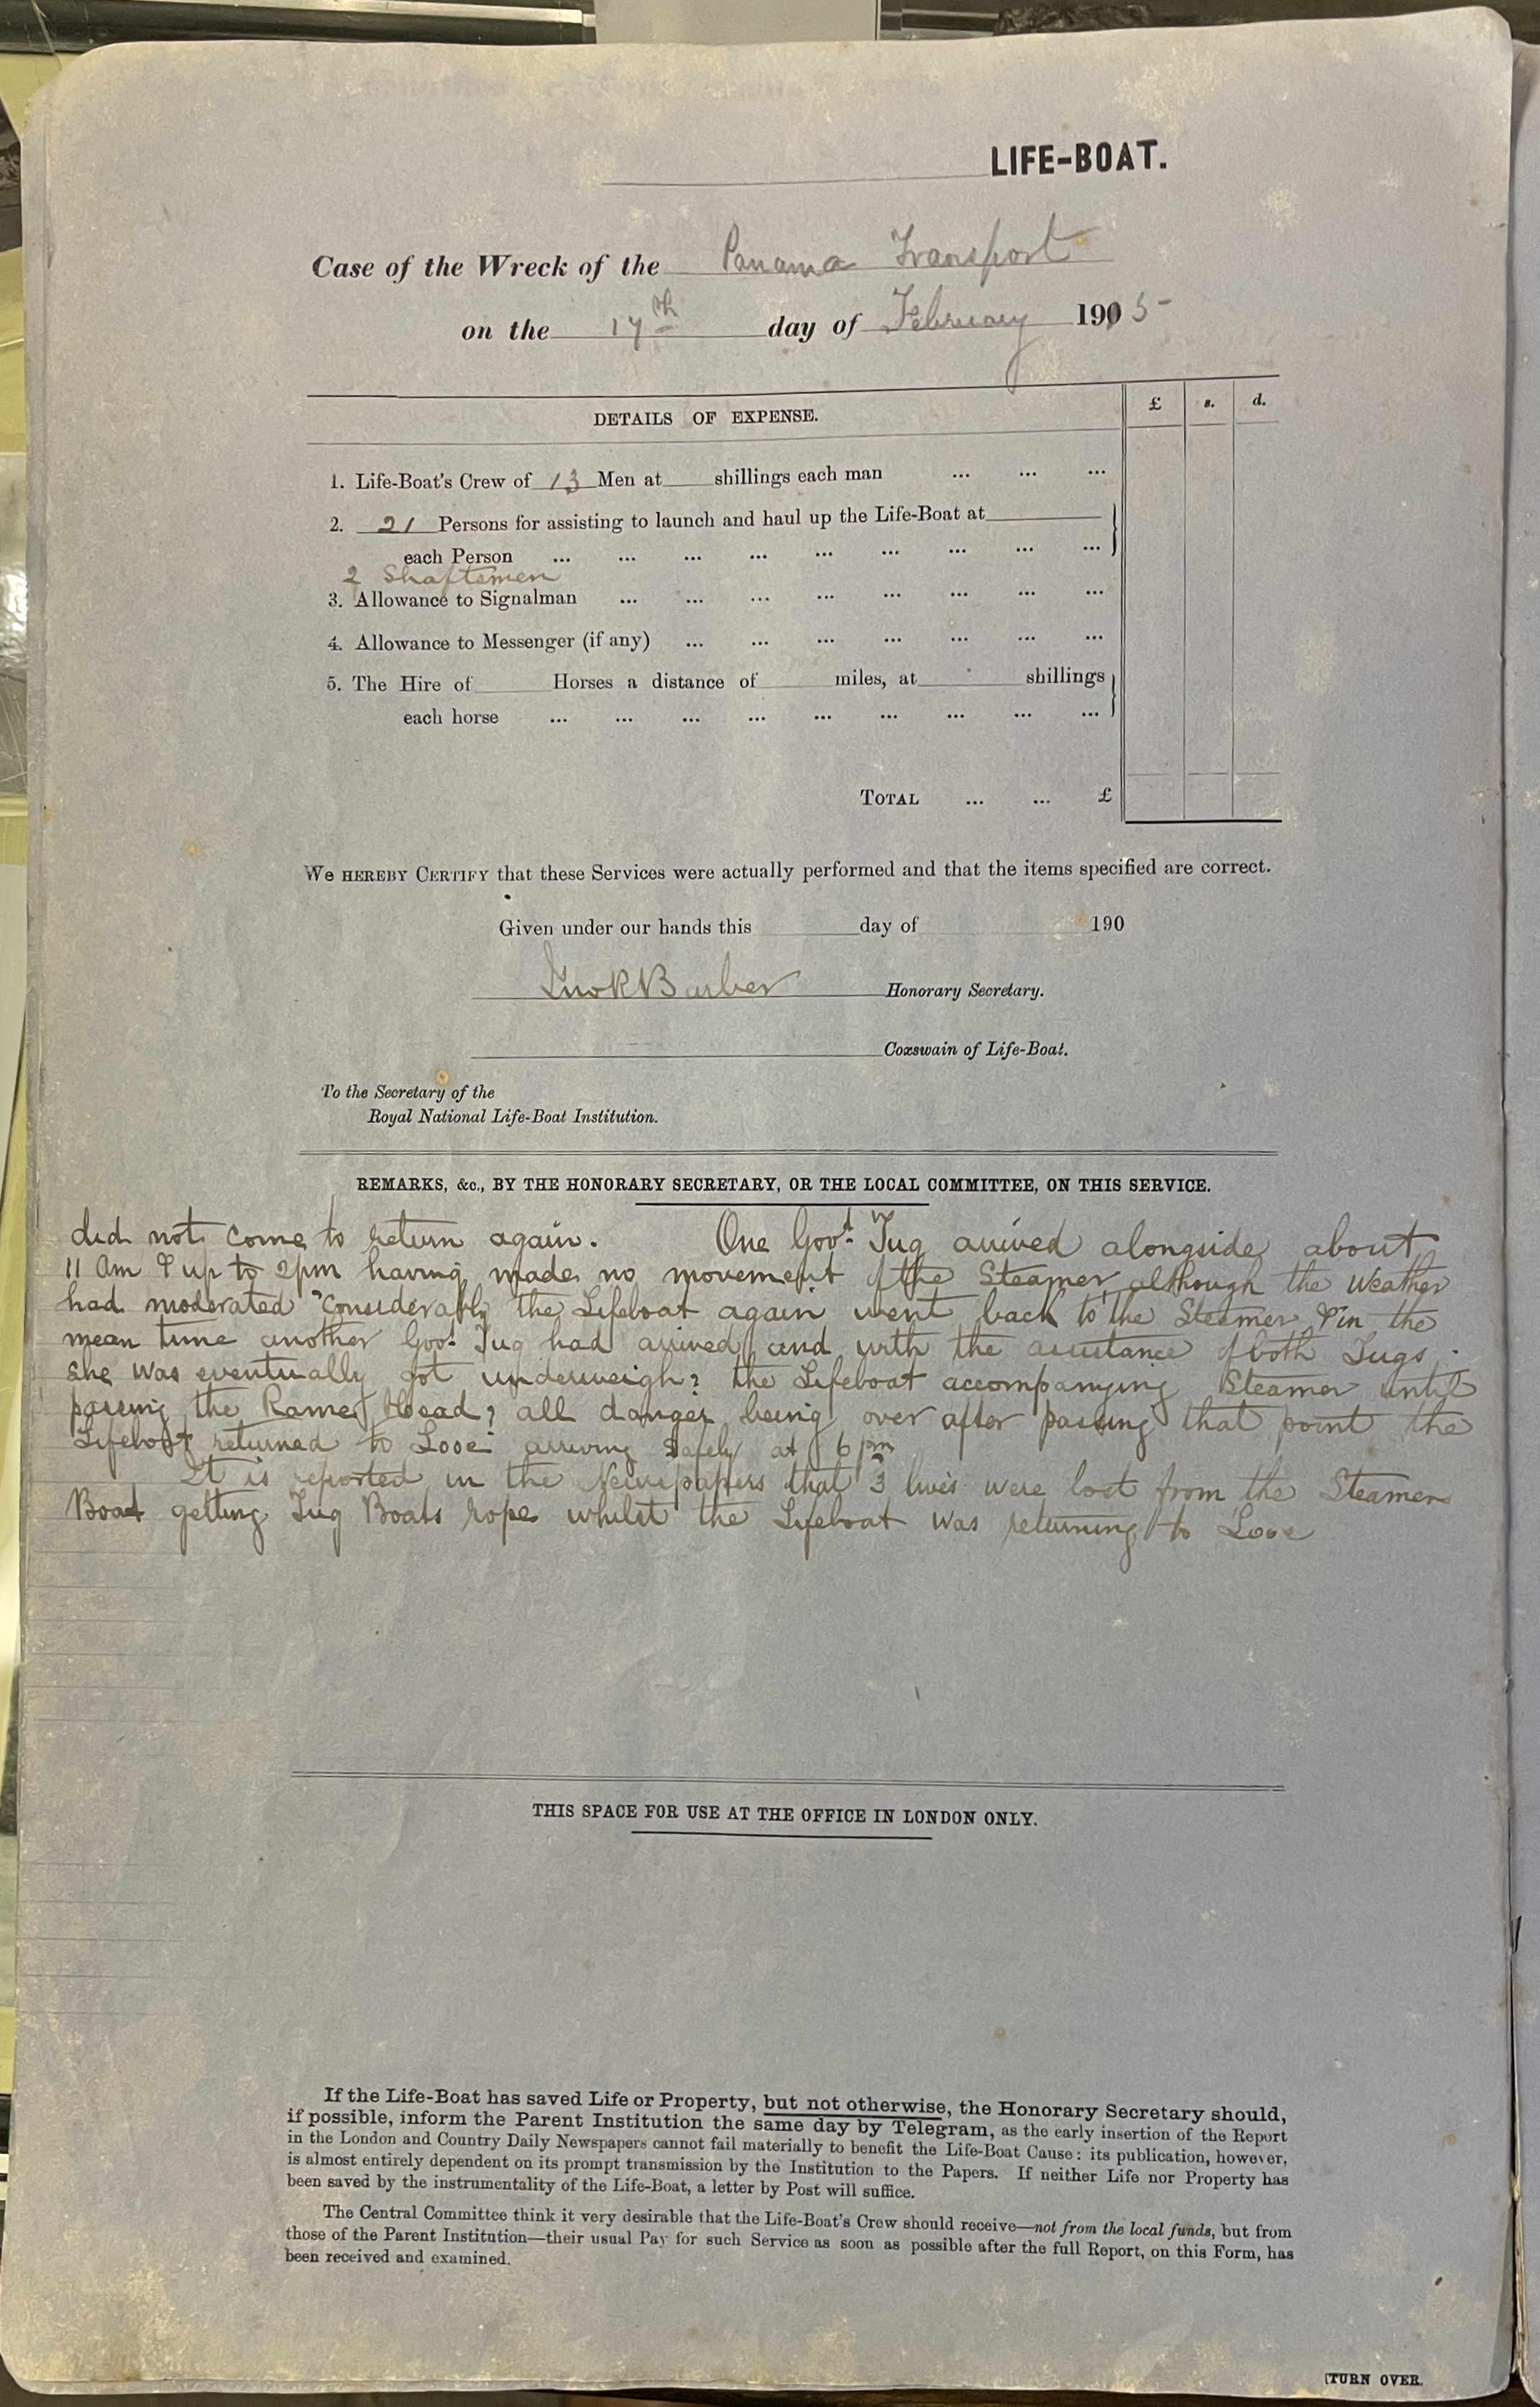 LIFE-BOAT.
Case of the Wreck of the Panama Transport
on the 17th day of February 1905
DETAILS OF EXPENSE. £ s. d.
1. Life-Boat's Crew of 13 Men at shillings each man ... ... ...
2. 21 Persons for assisting to launch and haul up the Life-Boat at
each Person ... ... ... ... ... ... ... ... ...
2 Shaftsmen
3. Allowance to Signalman ... ... ... ... ... ... ... ...
4. Allowance to Messenger (if any) ... ... ... ... ... ... ...
5. The Hire of Horses a distance of miles, at shillings
each horse ... ... ... ... ... ... ... ... ...
TOTAL ... ... £
We HEREBY CERTIFY that these Services were actually performed and that the items specified are correct.
Given under our hands this day of 190
Barber Honorary Secretary.
Coxswain of Life-Boat.
To the Secretary of the
Royal National Life-Boat Institution.
REMARKS, &c., BY THE HONORARY SECRETARY, OR THE LOCAL COMMITTEE, ON THIS SERVICE.
did not come to return again. One Govt Tug arrived alongside about
11 Am & up to 2pm having made no movement of the Steamer although the weather
had moderated considerably the Lifeboat again went back to the Steamer & in the
mean time another Govt Tug had arrived and with the assistance of both Tugs
she was eventually got underweigh? the Lifeboat accompanying Steamer until
passing the Rame Head? all danger being over after passing that point the
Lifeboat returned to Looe arriving safely at 6 pm
It is reported in the Newspapers that 3 lives were lost from the Steamers
Boat getting Tug Boats rope whilst the Lifeboat was returning to Looe
THIS SPACE FOR USE AT THE OFFICE IN LONDON ONLY.
If the Life-Boat has saved Life or Property, but not otherwise, the Honorary Secretary should,
if possible, inform the Parent Institution the same day by Telegram, as the early insertion of the Report
in the London and Country Daily Newspapers cannot fail materially to benefit the Life-Boat Cause: its publication, however,
is almost entirely dependent on its prompt transmission by the Institution to the Papers. If neither Life nor Property has
been saved by the instrumentality of the Life-Boat, a letter by Post will suffice.
The Central Committee think it very desirable that the Life-Boat's Crew should receive—not from the local funds, but from
those of the Parent Institution—their usual Pay for such Service as soon as possible after the full Report, on this Form, has
been received and examined.
[TURN OVER.